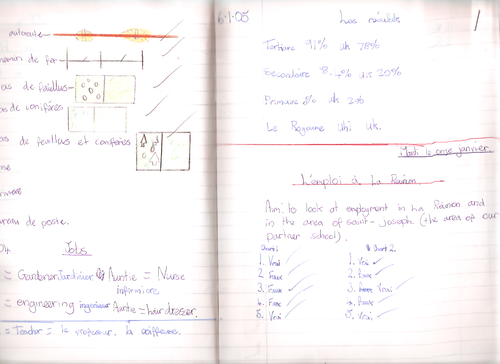 autoroute
de fer
as de feuillus
as de conifères
as de feuillus et conifères
de poste.
Jobs
= Gardener Jardinier Auntie = Nurse
infirmière
= engineering ingenieur Auntie = hairdresser.
= Teacher = le professeur. la coiffeuse.
6.1.05
Les résultats
1
Tertiaire 91% uk 78%
Secondaire uk 20%
Primaire uk 2%
Le Royaume Uni UK.
Mardi le onze janvier.
L'emploi à La Réunion
Aim: to look at employment in La Réunion and
in the area of saint-joseph (the area of our
partner school).
1. Vrai
2. Faux
3. Faux
4. Faux
5. Vrai
2.
1. Vrai
2. Faux
3. Vrai
5. Vrai